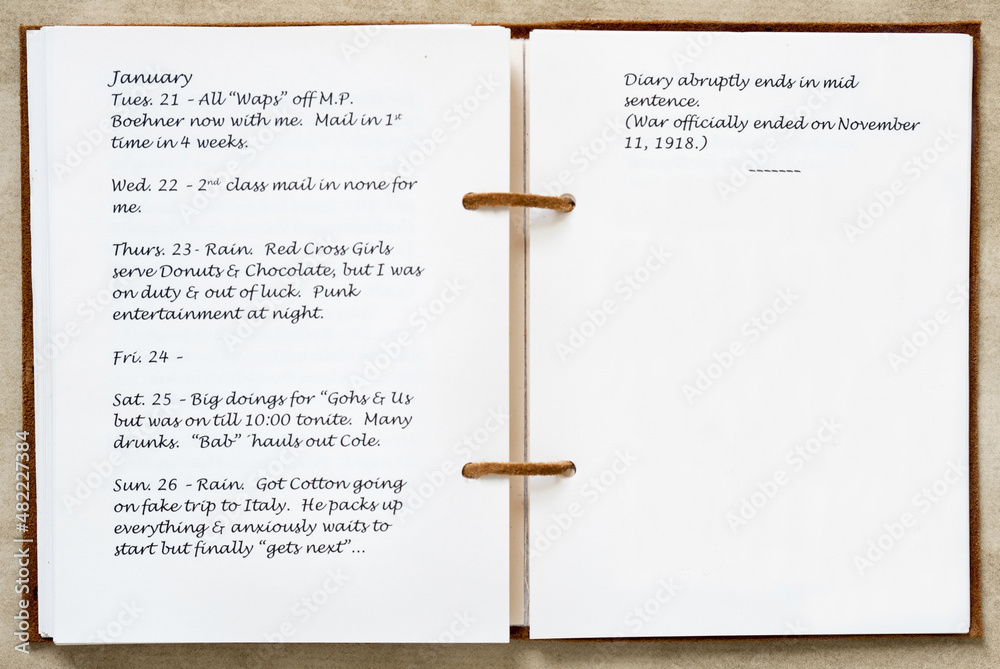 January
Tues. 21 – All “Waps” off M.P.
Boehner now with me. Mail in 1st
time in 4 weeks.
Wed. 22 – 2nd class mail in none for
me.
Thurs. 23- Rain. Red Cross Girls
serve Donuts & Chocolate, but I was
on duty & out of luck. Punk
entertainment at night.
Fri. 24 –
Sat. 25 – Big doings for “Gohs & Us
but was on till 10:00 tonite. Many
drunks. “Bab” ´hauls out Cole.
Sun. 26 – Rain. Got Cotton going
on fake trip to Italy. He packs up
everything & anxiously waits to
start but finally “gets next”...
Diary abruptly ends in mid
sentence.
(War officially ended on November
11, 1918.)
-------
Adobe Stock | #482227384